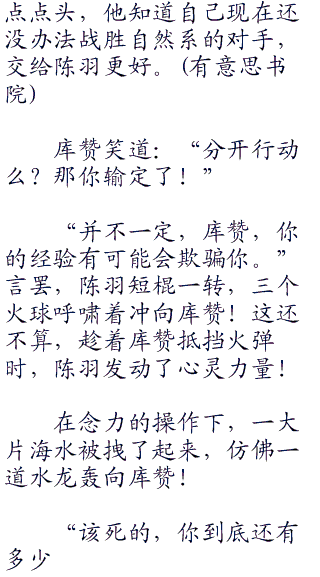 点点头，他知道自己现在还
没办法战胜自然系的对手，
交给陈羽更好。(有意思书
院)
库赞笑道：“分开行动
么？那你输定了！”
“并不一定，库赞，你
的经验有可能会欺骗你。”
言罢，陈羽短棍一转，三个
火球呼啸着冲向库赞！这还
不算，趁着库赞抵挡火弹
时，陈羽发动了心灵力量！
在念力的操作下，一大
片海水被拽了起来，仿佛一
道水龙轰向库赞！
“该死的，你到底还有
多少